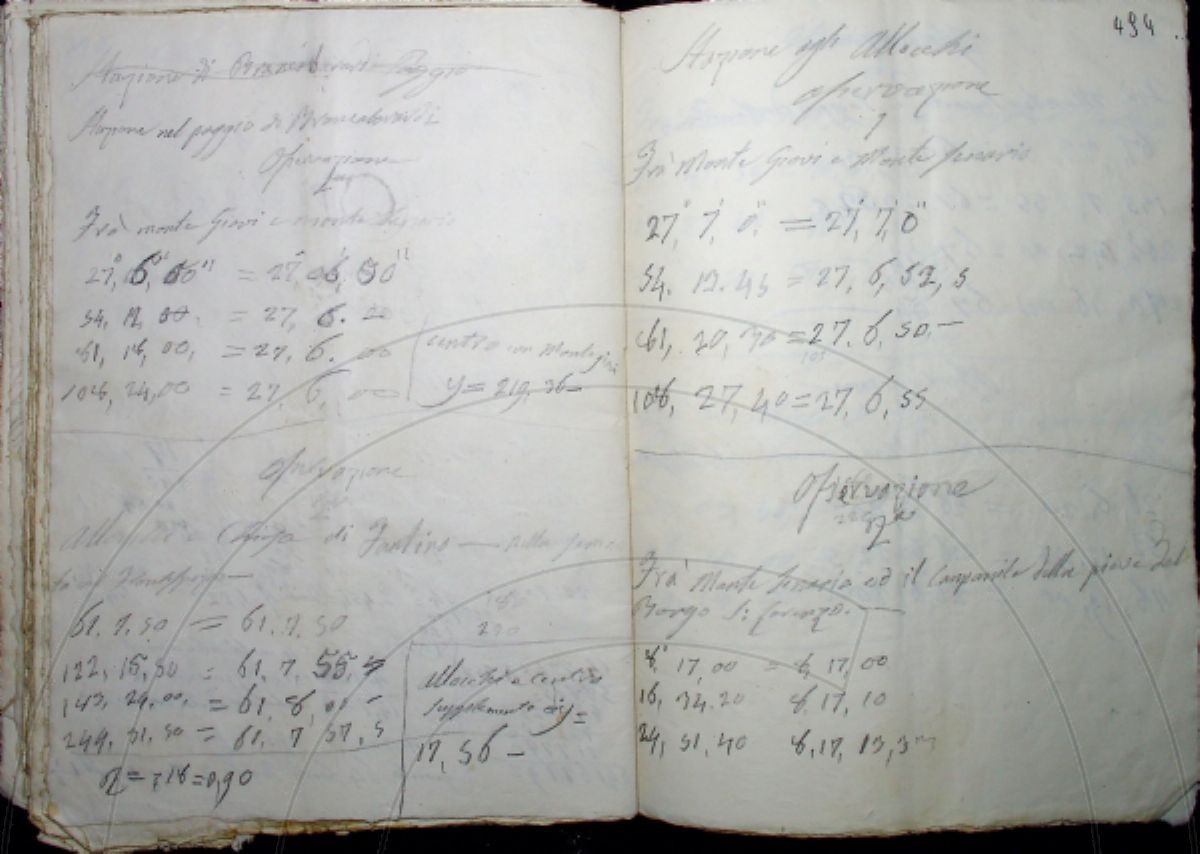 Stazione di Brancolardi Poggio
Stazione nel poggio di Brancolardi
Osservazione
Fra monte Giovi e monte Senario
27°, 6', 00" = 27°, 06', 00"
54, 12, 00 = 27, 6. 00
81, 18, 00, = 27, 6. 00
108, 24, 00 = 27, 6, 00
centro con Monte Giovi
y = 219,36 –
Osservazione
Allocchi e di – della
61. 7. 50 = 61. 7. 50
122, 15, 50 = 61. 7 55,
183, 24, 00, = 61, 8, 00
244, 31, 50 = 61, 7 57, 5
r = 7,18 = 0,90
Allocchi e centro
supplemento di y =
17, 56 –
494
Stazione agli Allocchi
Osservazione
1
Fra Monte Giovi e Monte Senario
27°, 7', 0" = 27°, 7', 0"
54. 13. 45 = 27, 6, 52, 5
81, 20, 30 = 27. 6, 50. –
108, 27, 40 = 27, 6, 55
Osservazione
2
Fra Monte Senario ed il Campanile della pieve del
Borgo S: Lorenzo. –
8°, 17, 00 = 8, 17, 00
16, 34. 20 8, 17, 10
24, 51, 40 8, 17, 13, 3